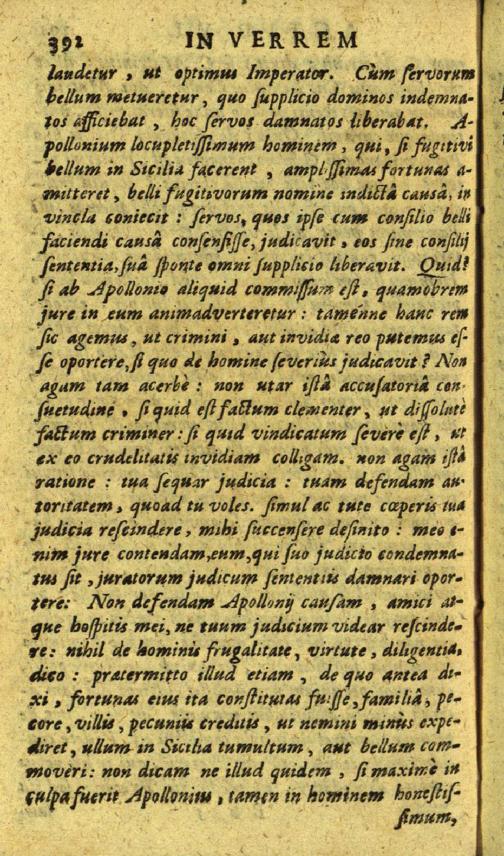 392 IN VERREM
laudetur, ut optimus Imperator. Cùm ſervorum
bellum metueretur, quo ſupplicio dominos indemna-
tos afficiebat, hoc ſervos damnatos liberabat. A-
pollonium locupletiſſimum hominem, qui, ſi fugitivi
bellum in Sicilia facerent, ampliſſimas fortunas a-
mitteret, belli fugitivorum nomine indictâ causâ, in
vincla coniecit: ſervos, quos ipſe cum conſilio belli
faciendi causâ conſenſiſſe, judicavit, eos ſine conſilij
ſententia, ſuâ ſponte omni ſupplicio liberavit. Quid?
ſi ab Apollonio aliquid commiſſum eſt, quamobrem
jure in eum animadverteretur: tamenne hanc rem
ſic agemus, ut crimini, aut invidiæ reo putemus eſ-
ſe oportere, ſi quo de homine ſeveriùs judicavit? Non
agam tam acerbè: non utar iſtâ accuſatoriâ con-
ſuetudine, ſi quid eſt factum clementer, ut diſſolutè
factum criminer: ſi quid vindicatum ſeverè eſt, ut
ex eo crudelitatis invidiam colligam. non agam iſtâ
ratione: tua ſequar judicia: tuam defendam au-
toritatem, quoad tu voles. ſimul ac tute cœperis tua
judicia reſcindere, mihi ſuccenſere deſinito: meo e-
nim jure contendam, eum, qui ſuo judicio condemna-
tus ſit, juratorum judicum ſententiis damnari opor-
tere: Non defendam Apollonij cauſam, amici at-
que hoſpitis mei, ne tuum judicium videar reſcinde-
re: nihil de hominis frugalitate, virtute, diligentia,
dico: prætermitto illud etiam, de quo antea di-
xi, fortunas eius ita conſtitutas fuiſſe, familiâ, pe-
core, villis, pecuniis creditis, ut nemini minùs expe-
diret, ullum in Sicilia tumultum, aut bellum com-
moveri: non dicam ne illud quidem, ſi maximè in
culpa fuerit Apollonius, tamen in hominem honeſtiſ-
ſimum,